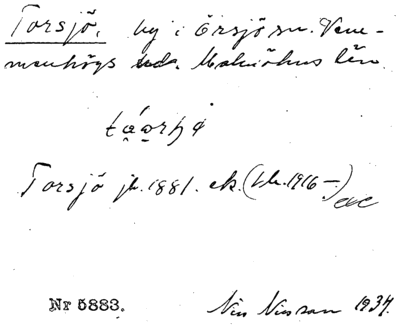 Torsjö, by i Örsjö sn. Vem-
menhögs hd. Malmöhus län
Torsjö jb. 1881. ek. (bl. 1916 —)
Nr 5883. Nils Nilsson 1934.